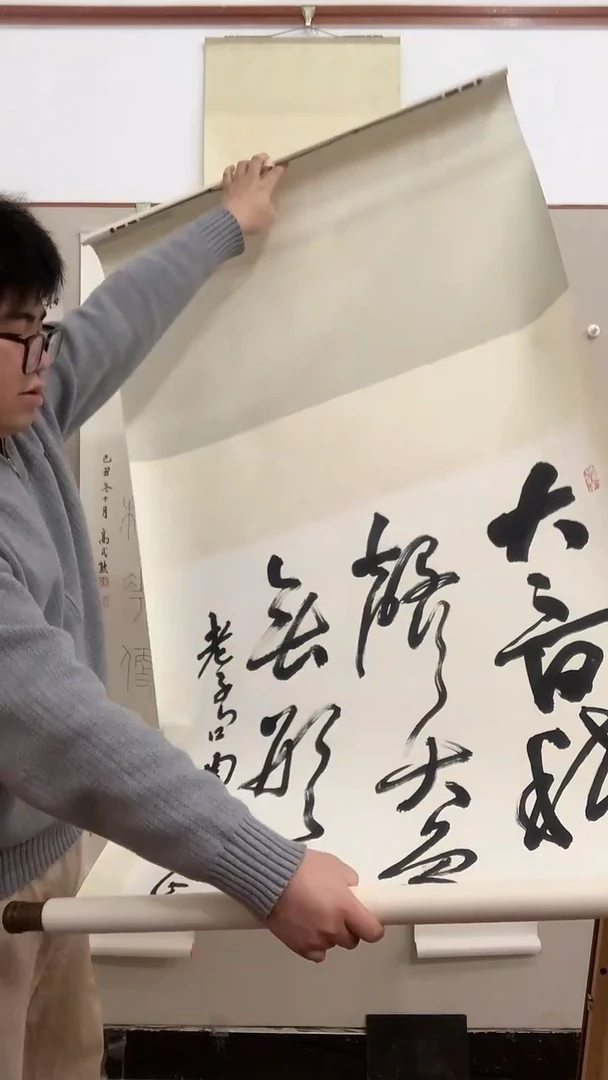 大音稀
聲大象
無形
老子句
己丑冬十月高式熊